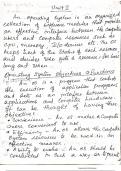 Unit I
An Operating System is an organized
collection of software modules that provide
an effective interface between the computer
user and computer resources such as
cpu, memory, I/O devices etc. The OS
keeps track of the status of each resource
and decides who gets a resource, for how
long and when.
Operating System Objectives & Functions
the execution of application programs
and acts as an interface between
applications and computer hardware.
can be thought of having three
objectives:-
Convenience:- An OS makes a computer
more convenient to use.
Efficiency:- An OS allows the computer
System resources to be used in an
efficient manner.
Ability to evolve:- An OS should be
constructed in such a way as to permit